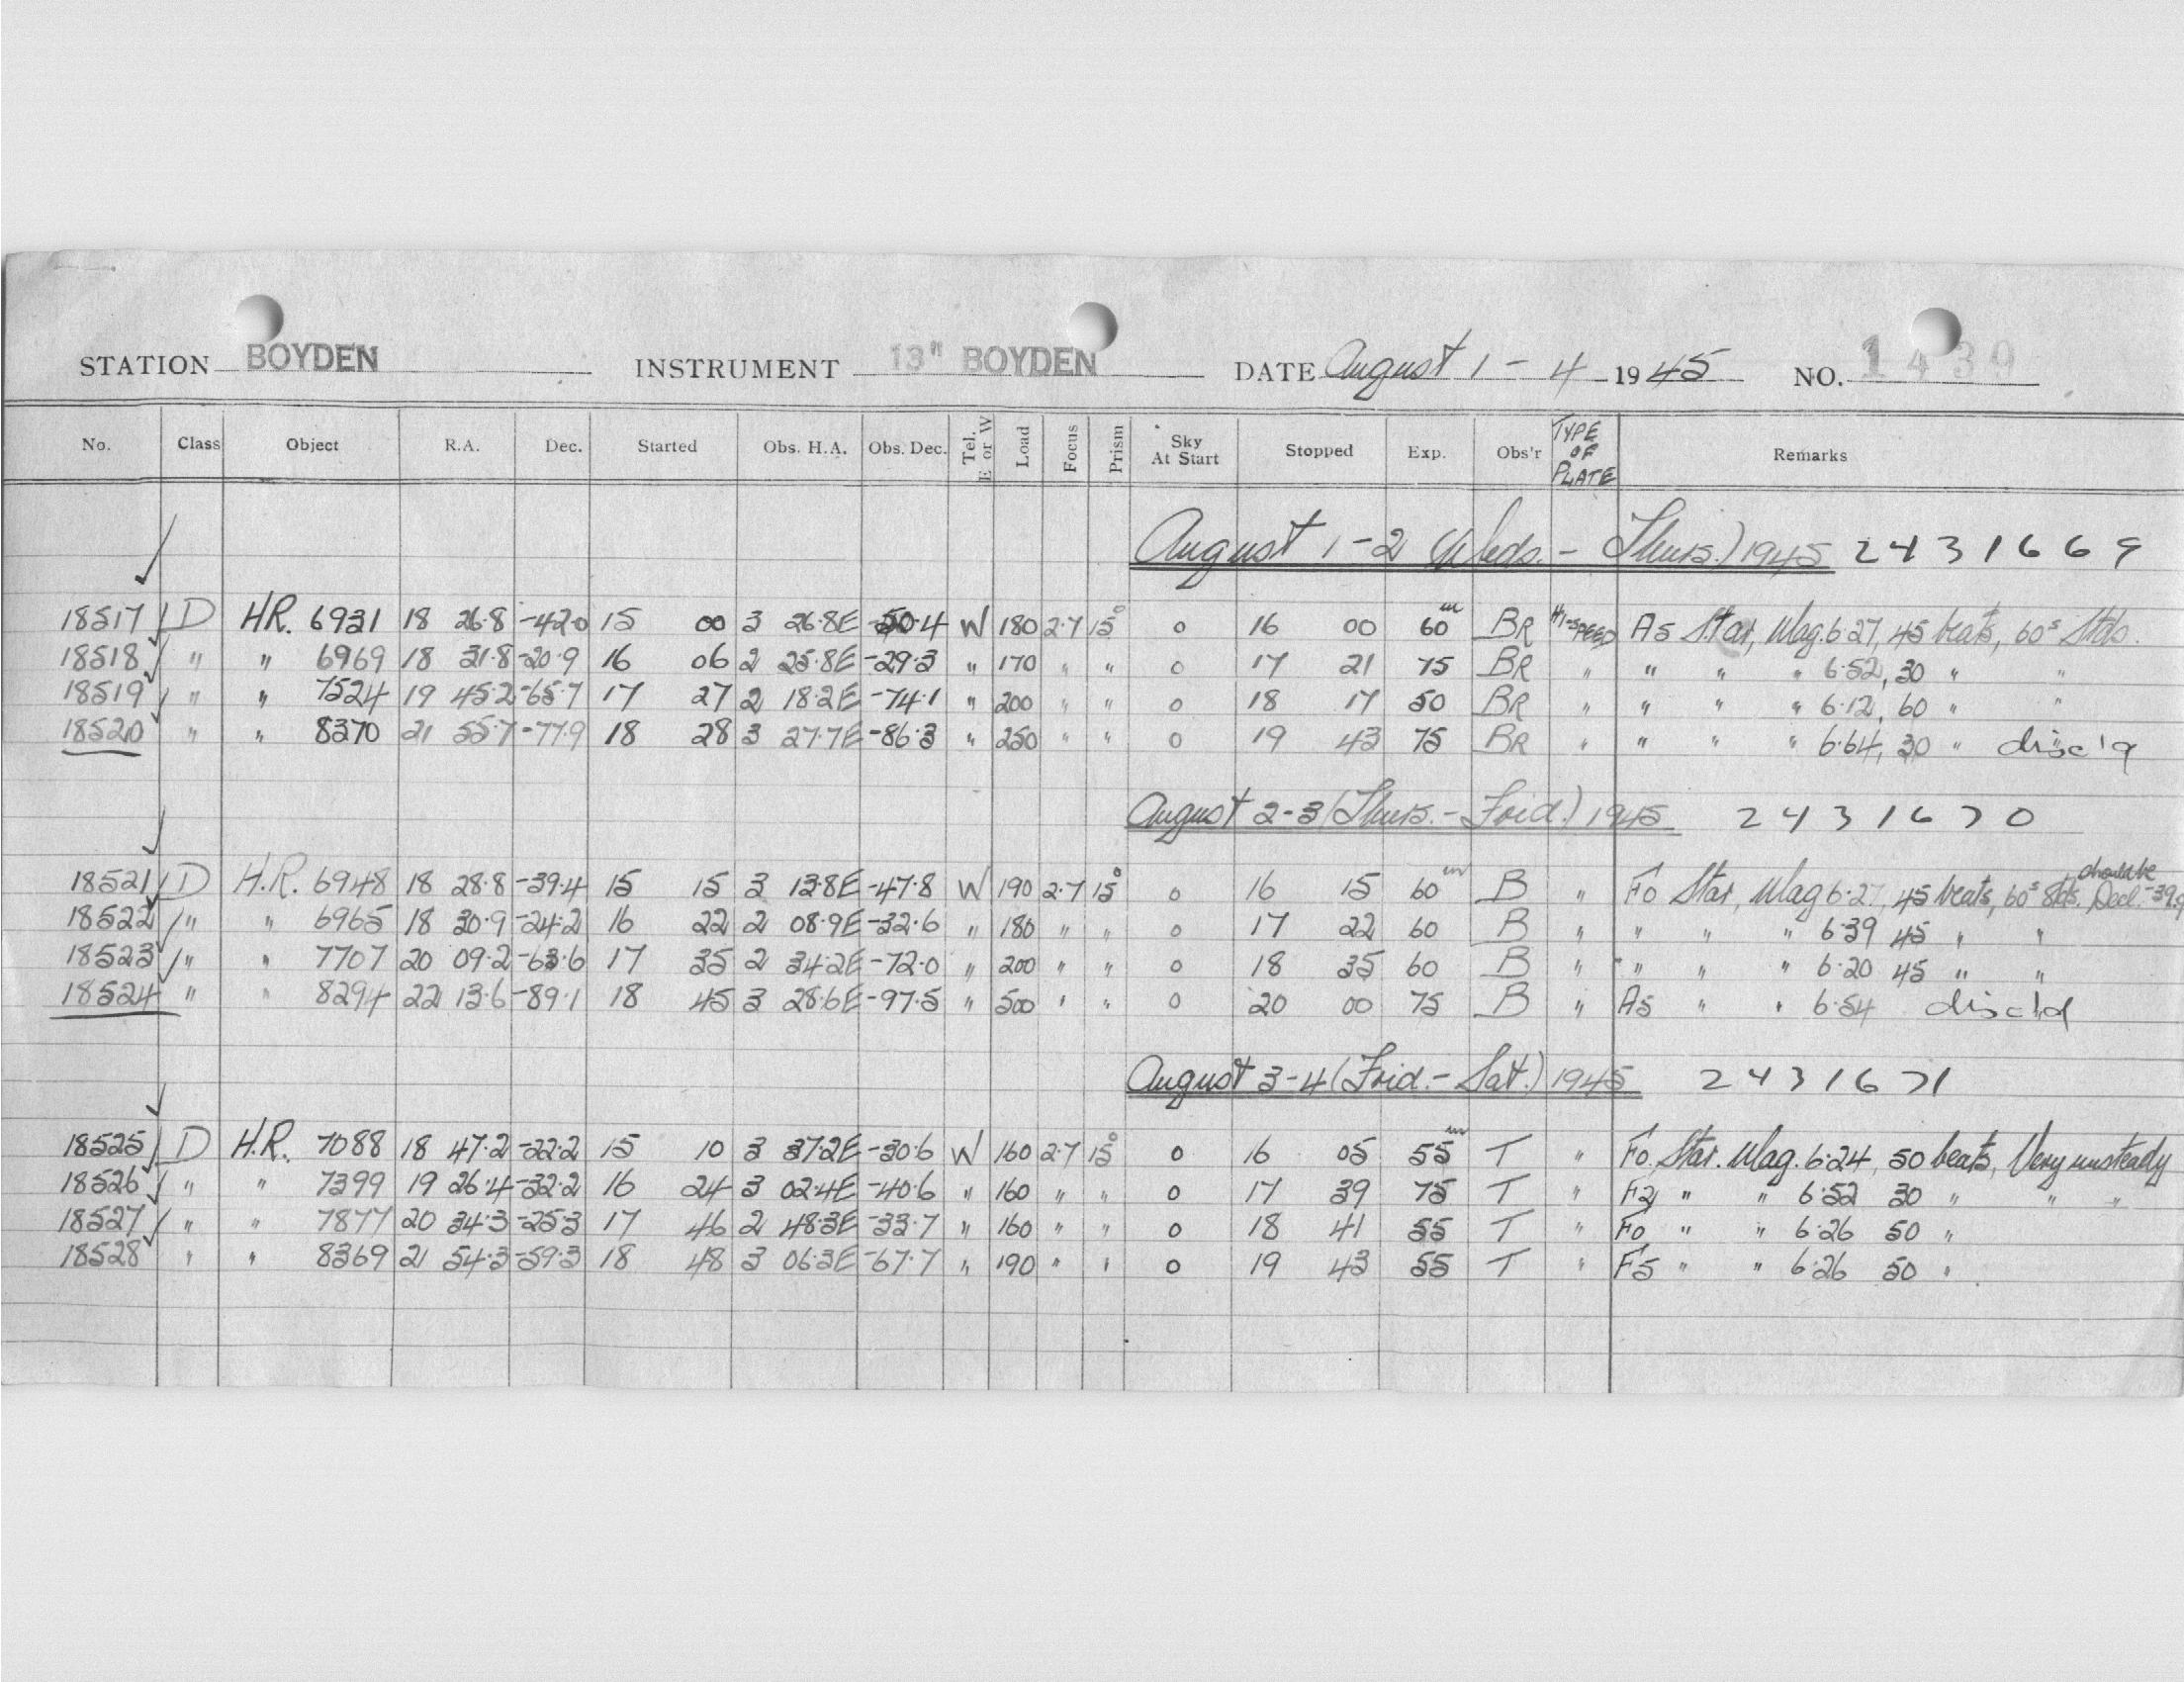 STATION BOYDEN INSTRUMENT 13" BOYDEN DATE August 1 - 4 1945 NO. 1439
No. Class Object R.A. Dec. Started Obs. H.A. Obs. Dec. Tel. E or W Load Focus Prism Sky At Start Stopped Exp. Obs'r TYPE OF PLATE Remarks
August 1-2 (Weds. - Thurs.) 1945 2431669
18517 D HR. 6931 18 26.8 -42.0 15 00 3 26.8E -50.4 W 180 2.7 15° 0 16 00 60m BR HI-SPEED A5 Star, Mag. 6.27, 45 beats, 60s Stds.
18518 " " 6969 18 31.8 -20.9 16 06 2 25.8E -29.3 " 170 " " 0 17 21 75 BR " " " " 6.52, 30 " "
18519 " " 7524 19 45.2 -65.7 17 27 2 18.2E -74.1 " 200 " " 0 18 17 50 BR " " " " 6.12, 60 " "
18520 " " 8370 21 55.7 -77.9 18 28 3 27.7E -86.3 " 250 " " 0 19 43 75 BR " " " " 6.64, 30 " disc'd
August 2-3 (Thurs. - Frid.) 1945 2431670
18521 D H.R. 6948 18 28.8 -39.4 15 15 3 13.8E -47.8 W 190 2.7 15° 0 16 15 60m B " F0 Star, Mag 6.27, 45 beats, 60s Stds. should be Decl. -39.9
18522 " " 6965 18 30.9 -24.2 16 22 2 08.9E -32.6 " 180 " " 0 17 22 60 B " " " " 6.39 45 " "
18523 " " 7707 20 09.2 -63.6 17 35 2 34.2E -72.0 " 200 " " 0 18 35 60 B " " " " 6.20 45 " "
18524 " " 8294 22 13.6 -89.1 18 45 3 28.6E -97.5 " 500 " " 0 20 00 75 B " A5 " " 6.54 disc'd
August 3-4 (Frid. - Sat.) 1945 2431671
18525 D H.R. 7088 18 47.2 -22.2 15 10 3 37.2E -30.6 W 160 2.7 15° 0 16 05 55m T " F0 Star. Mag. 6.24, 50 beats, Very unsteady
18526 " " 7399 19 26.4 -32.2 16 24 3 02.4E -40.6 " 160 " " 0 17 39 75 T " F2 " " 6.52 30 " " "
18527 " " 7877 20 34.3 -25.3 17 46 2 48.3E -33.7 " 160 " " 0 18 41 55 T " F0 " " 6.26 50 "
18528 " " 8369 21 54.3 -59.3 18 48 3 06.3E -67.7 " 190 " " 0 19 43 55 T " F5 " " 6.26 50 "